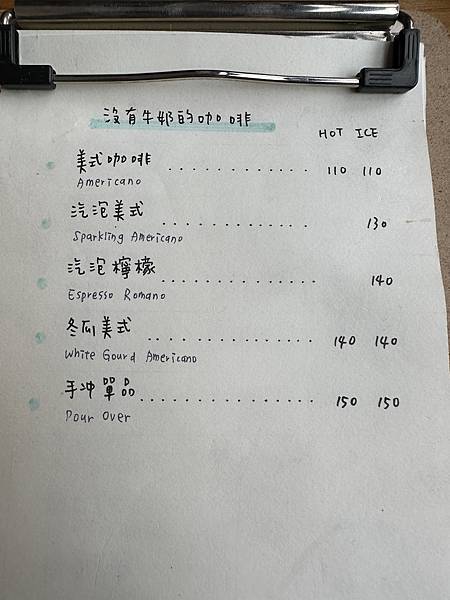 沒有牛奶的咖啡
HOT ICE
美式咖啡 .............. 110 110
Americano
汽泡美式 .............. 130
Sparkling Americano
汽泡檸檬 .............. 140
Espresso Romano
冬瓜美式 .............. 140 140
White Gourd Americano
手冲單品 .............. 150 150
Pour Over